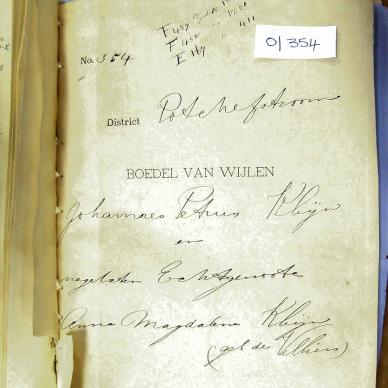 F 457
F 458
E 119 " 411
O/354
No. 354
District Potchefstroom
BOEDEL VAN WIJLEN
Johannes Petrus Kleijn
en
nagelaten Echtgenoote
Anna Magdalena Kleijn
(geb de Villiers)